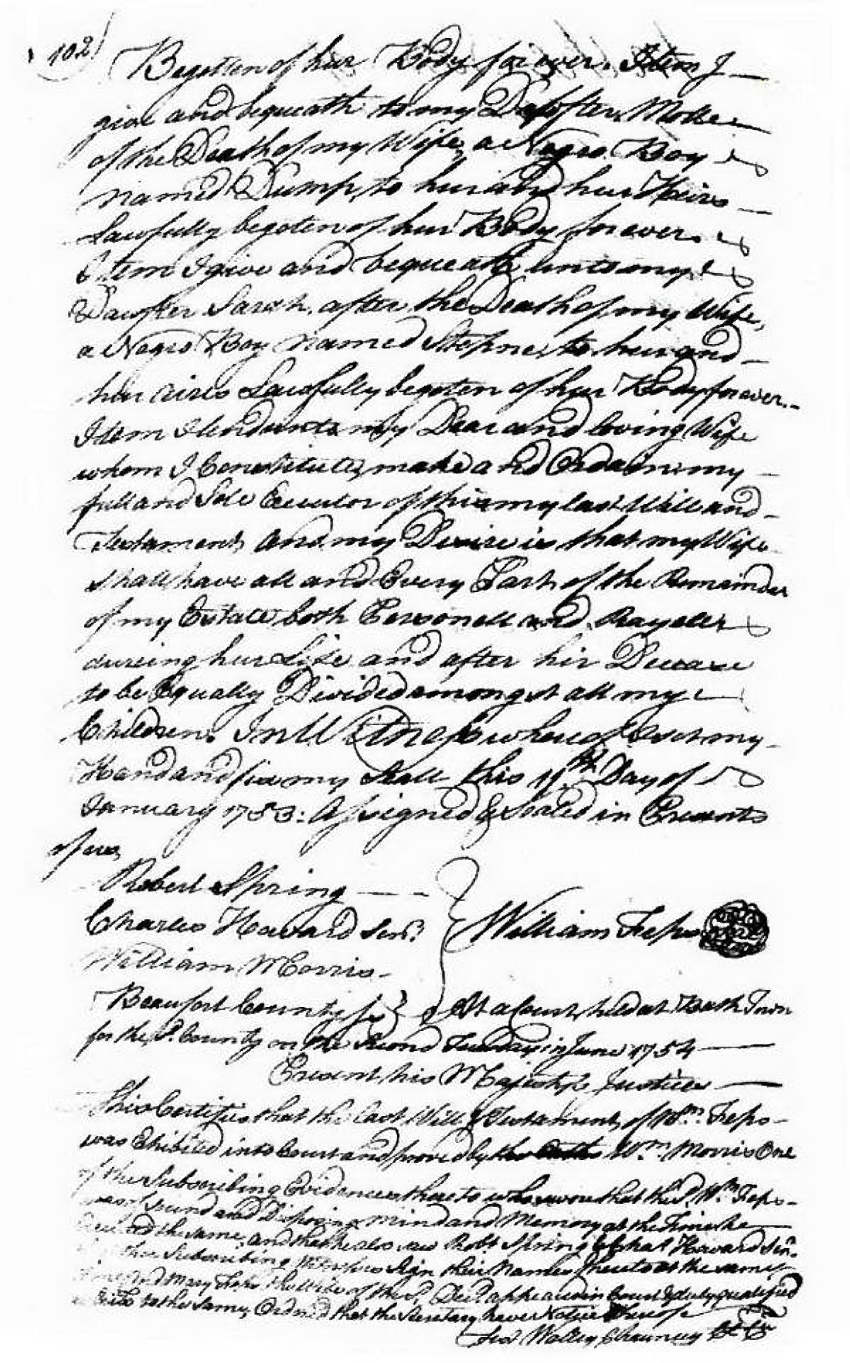 102
Begotten of hur Body for ever. Item I
give and bequeath to my Dafter Molle
of the Death of my Wife, a Negro Boy
named Dump, to hur and hur Hairs
Lawfully begoten of hur Body for ever.
Item I give and bequeath unto my
Dawfter Sarah, after the Death of my Wife,
a Negro Boy named Stepne, to hur and
hur aires Lawfully begoten of hur Body for ever.
Item I lend unto my Dear and loving Wife
whom I Constitute, make and Ordain my
full and Sole Executor of this my last Will and
Testament, and my Desire is that my Wife
shall have all and Every Part of the Remainder
of my Estate both Personell and Rayeler
dureing hur Life and after hir Decease
to be Equally Divided amongst all my
Children. In Witness whereof I set my
Hand and fix my Seall this 19th Day of
January 1753: Assigned & Sealed in Presents
of us,
Robert Spring
Charles Howard Senr.
William Morris
William Jesps
Beaufort County Sc At a Court held at Bath Town
for the Sd. County on the Second Tuesday in June 1754
Present his Majestys Justices
This Certifies that the Last Will & Testament of Wm. Jesps
was Exhibited into Court and proved by the Oath Wm. Morris One
of the Subscribing Evidences thereto who swore that the Sd. Wm. Jesps
was of sound and Disposing mind and Memory at the Time he
Executed the same, and that he also saw Robt Spring & Chas Howard Senr.
the other Subscribing Witnesses Sign their Names thereto at the same
time and Mary Jesps the Wife of the Sd. Decd. appeared in Court & duly qualified
to the Same, Ordered that the Secretary have Notice thereof
Test Walley Chauncy Ct. Cr.